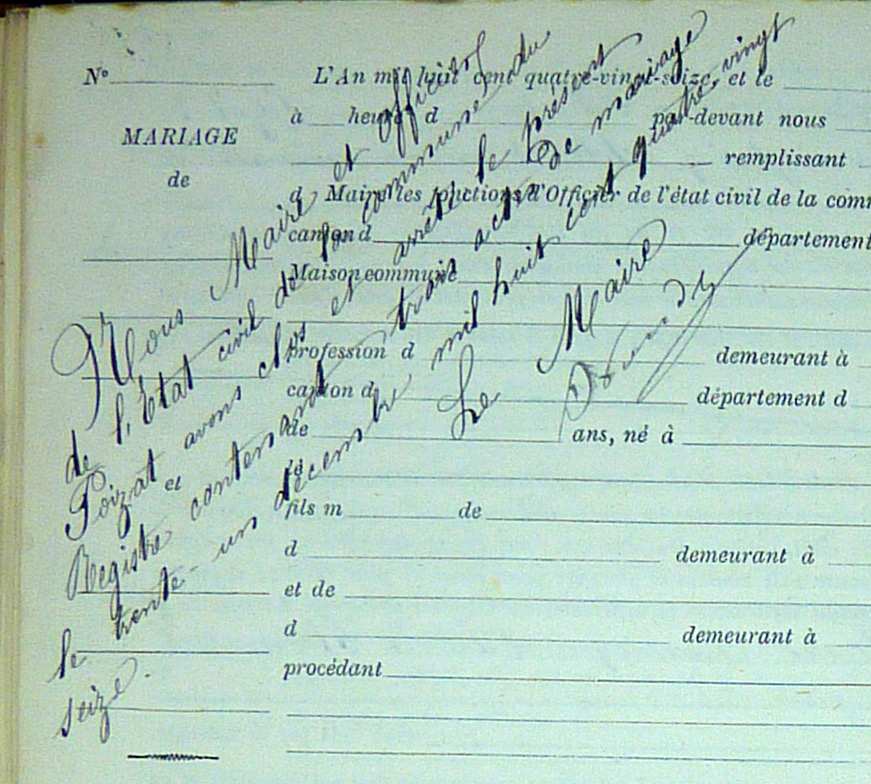 N° L'An mil huit cent quatre-vingt-seize, et le
à heure d par-devant nous
MARIAGE
remplissant
de
d Maire les fonctions d'Officier de l'état civil de la com
canton d département
Maison commune
profession d demeurant à
canton d département d
de ans, né à
et
fils m de
d demeurant à
et de
d demeurant à
procédant
Nous Maire et officier
de l'Etat civil de la commune du
Poizat avons clos et arrêté le présent
Registre contenant trois actes de mariage
le trente-un décembre mil huit cent quatre-vingt
seize.
Le Maire